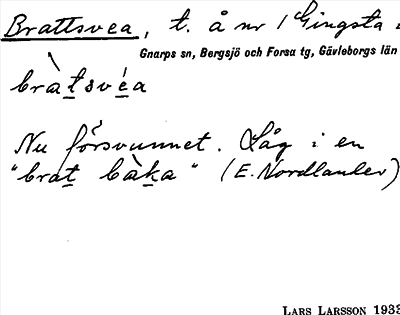 Brattsvea, t. å nr 1 Gingsta i
Gnarps sn, Bergsjö och Forsa tg, Gävleborgs län
bràtsvéa
Nu försvunnet. Låg i en
"brat bàka" (E. Nordlander)
LARS LARSSON 1933